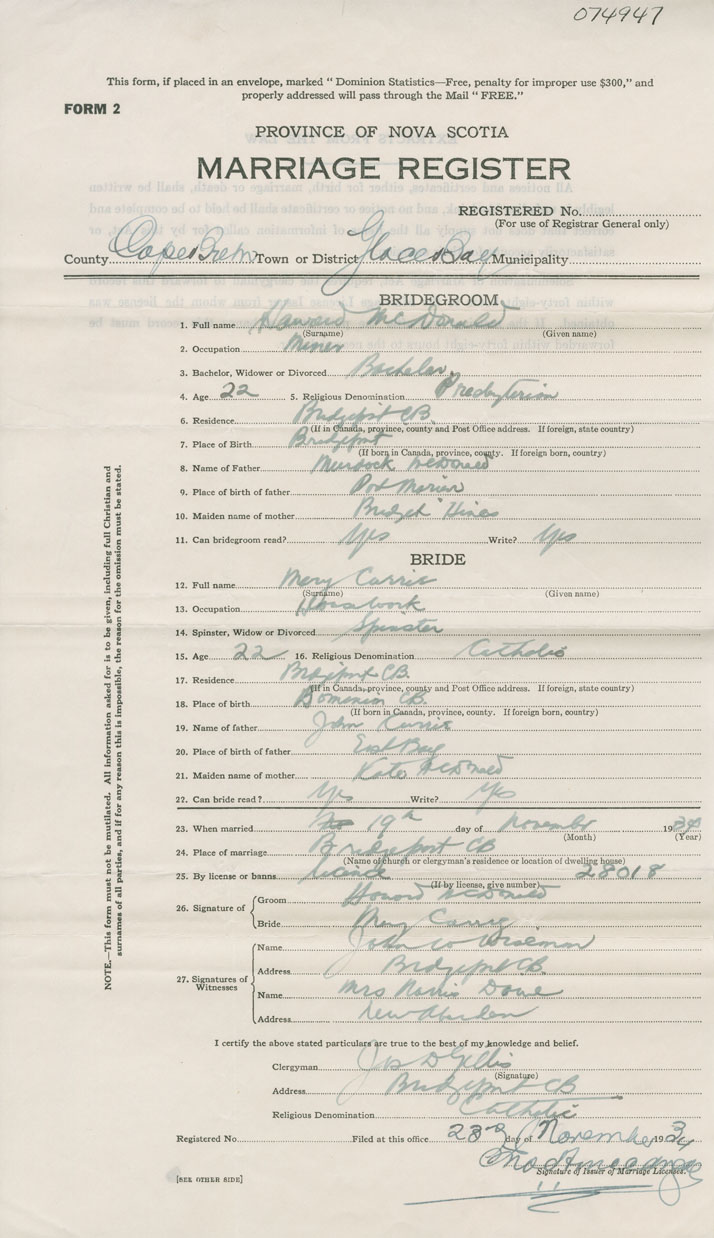 074947
This form, if placed in an envelope, marked "Dominion Statistics—Free, penalty for improper use $300," and
properly addressed will pass through the Mail "FREE."
FORM 2
PROVINCE OF NOVA SCOTIA
MARRIAGE REGISTER
REGISTERED No.
(For use of Registrar General only)
County Cape Breton Town or District Glace Bay Municipality
BRIDEGROOM
1. Full name Howard McDonald
(Surname) (Given name)
2. Occupation Miner
3. Bachelor, Widower or Divorced Bachelor
4. Age 22 5. Religious Denomination Presbyterian
6. Residence Bridgeport CB.
(If in Canada, province, county and Post Office address. If foreign, state country)
7. Place of Birth Bridgeport
(If born in Canada, province, county. If foreign born, country)
8. Name of Father Murdock McDonald
9. Place of birth of father Port Morien
10. Maiden name of mother Bridget Hines
11. Can bridegroom read? Yes Write? Yes
BRIDE
12. Full name Mary Currie
(Surname) (Given name)
13. Occupation Housework
14. Spinster, Widow or Divorced Spinster
15. Age 22 16. Religious Denomination Catholic
17. Residence Bridgeport CB.
(If in Canada, province, county and Post Office address. If foreign, state country)
18. Place of birth Dominion CB.
(If born in Canada, province, county. If foreign born, country)
19. Name of father John Currie
20. Place of birth of father East Bay
21. Maiden name of mother Kate McDonald
22. Can bride read? Yes Write? Yes
23. When married 19th day of November 1934
(Month) (Year)
24. Place of marriage Bridgeport CB
(Name of church or clergyman's residence or location of dwelling house)
25. By license or banns license 28018
(If by license, give number)
26. Signature of Groom Howard McDonald
Bride Mary Currie
27. Signatures of Witnesses Name John W Wiseman
Address Bridgeport CB.
Name Mrs Norris Dowe
Address New Aberdeen
I certify the above stated particulars are true to the best of my knowledge and belief.
Clergyman Jos D Gillis
(Signature)
Address Bridgeport CB
Religious Denomination Catholic
Registered No. Filed at this office 23rd day of November 1934
Signature of Issuer of Marriage Licenses.
[SEE OTHER SIDE]
NOTE.—This form must not be mutilated. All information asked for is to be given, including full Christian and
surnames of all parties, and if for any reason this is impossible, the reason for the omission must be stated.